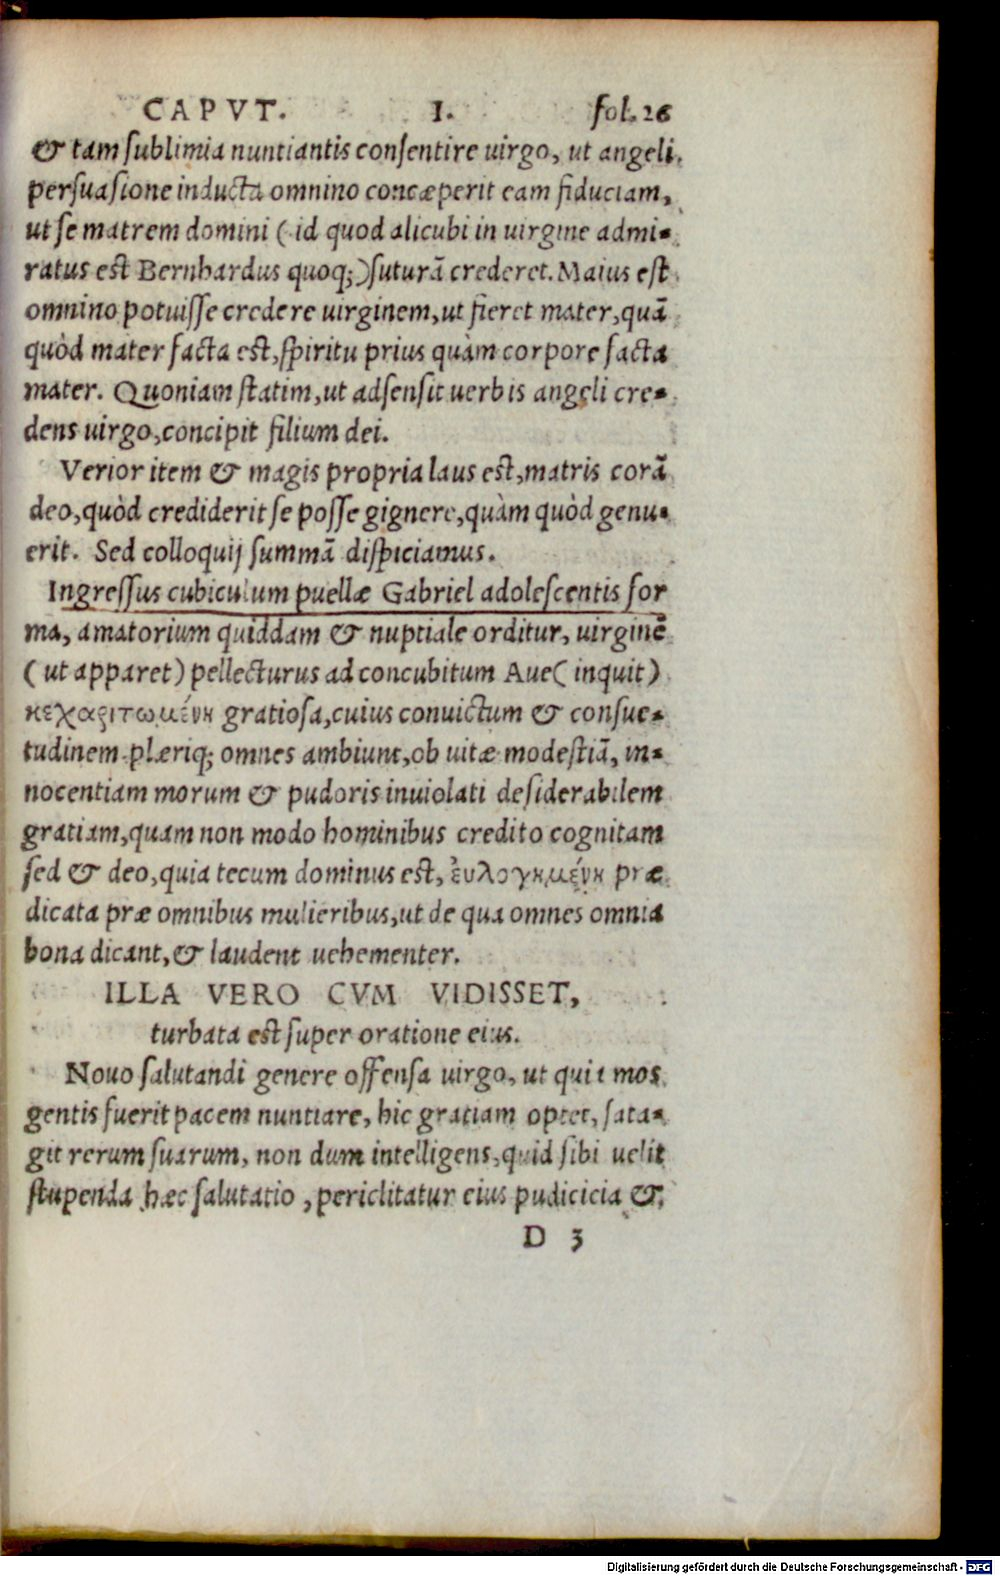 CAPVT. I. fol. 26
& tam sublimia nuntiantis consentire uirgo, ut angeli
persuasione inducta omnino concæperit eam fiduciam,
ut se matrem domini ( id quod alicubi in uirgine admi-
ratus est Bernhardus quoq;) futurā crederet. Maius est
omnino potuisse credere uirginem, ut fieret mater, quā
quòd mater facta est, spiritu prius quàm corpore facta
mater. Quoniam statim, ut adsensit uerbis angeli cre-
dens uirgo, concipit filium dei.
Verior item & magis propria laus est, matris corā
deo, quòd crediderit se posse gignere, quàm quòd genu-
erit. Sed colloquij summā dispiciamus.
Ingressus cubiculum puellæ Gabriel adolescentis for
ma, amatorium quiddam & nuptiale orditur, uirginē
( ut apparet) pellecturus ad concubitum Aue( inquit)
κεχαριτωμένη gratiosa, cuius conuictum & consue-
tudinem plæriq; omnes ambiunt, ob uitæ modestiā, in-
nocentiam morum & pudoris inuiolati desiderabilem
gratiam, quam non modo hominibus credito cognitam
sed & deo, quia tecum dominus est, ἐυλογημένη præ
dicata præ omnibus mulieribus, ut de qua omnes omnia
bona dicant, & laudent uehementer.
ILLA VERO CVM VIDISSET,
turbata est super oratione eius.
Nouo salutandi genere offensa uirgo, ut qui mos
gentis fuerit pacem nuntiare, hic gratiam optet, sata-
git rerum suarum, non dum intelligens, quid sibi uelit
stupenda hæc salutatio , periclitatur eius pudicicia &
D 3
Digitalisierung gefördert durch die Deutsche Forschungsgemeinschaft - DFG